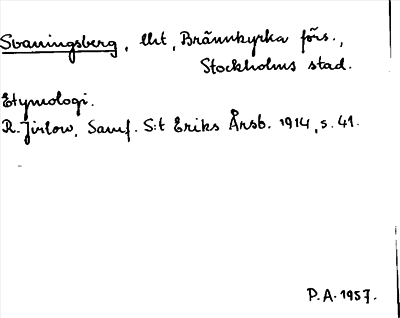 Svaningsberg, lht, Brännkyrka förs.,
Stockholms stad.
Etymologi.
R. Jirlow, Samf. S:t Eriks Årsb. 1914, s. 41.
P.A. 1957.